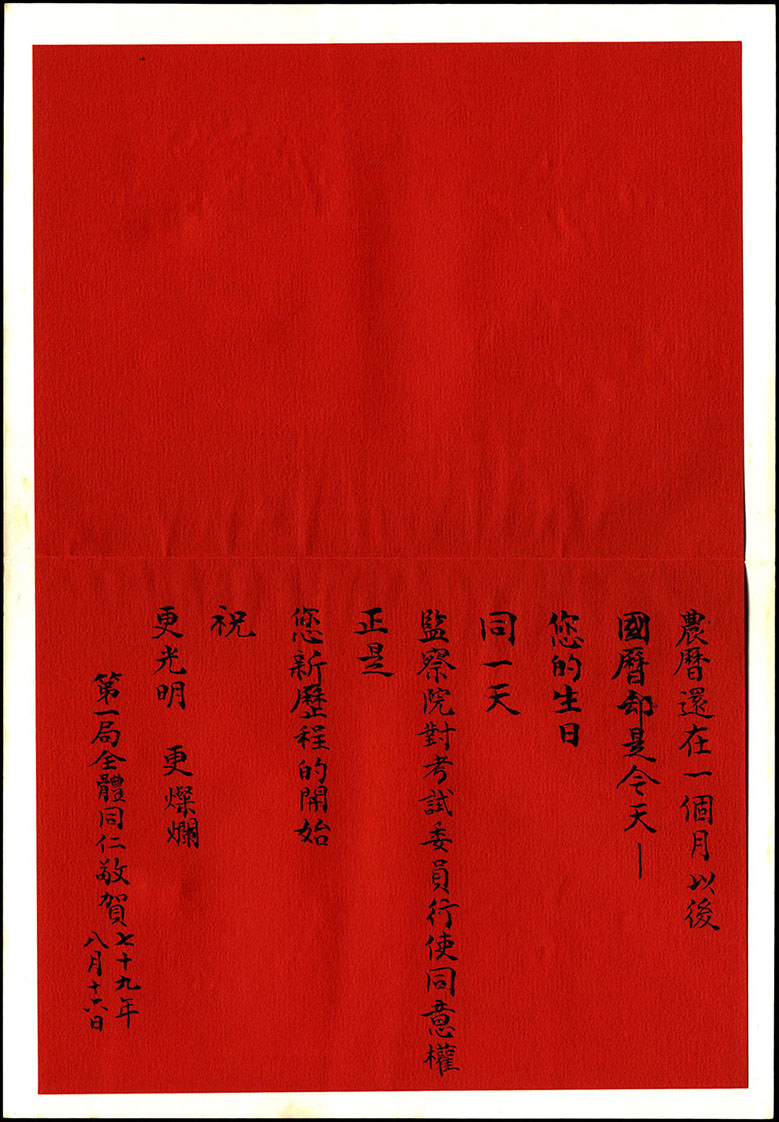 農曆還在一個月以後
國曆却是今天—
您的生日
同一天
監察院對考試委員行使同意權
正是
您新歷程的開始
祝
更光明　更燦爛
第一局全體同仁敬賀
七十九年
八月十六日